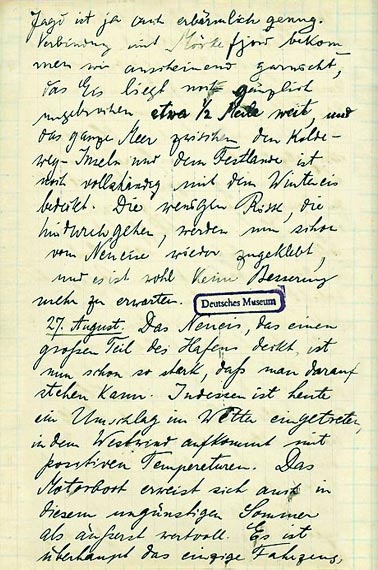 Jagd ist ja auch erbärmlich genug.
Verbindung mit Mörkefjord bekom
men wir anscheinend garnicht,
das Eis liegt noch gänzlich
ungebrochen etwa 1/2 Meile weit, und
das ganze Meer zwischen den Kolde-
wey-Inseln und dem Festlande ist
noch vollständig mit dem Wintereis
bedeckt. Die wenigen Risse, die
hindurchgehen, werden nun schon
vom Neueise wieder zugeklebt,
und es ist wohl keine Besserung
mehr zu erwarten.
Deutsches Museum
27. August. Das Neueis, das einen
großen Teil des Hafens deckt, ist
nun schon so stark, daß man darauf
stehen kann. Indessen ist heute
ein Umschlag im Wetter eingetreten,
indem Westwind aufkommt mit
positiven Temperaturen. Das
Motorboot erweist sich auch in
diesem ungünstigen Sommer
als äußerst wertvoll. Es ist
überhaupt das einzige Fahrzeug,